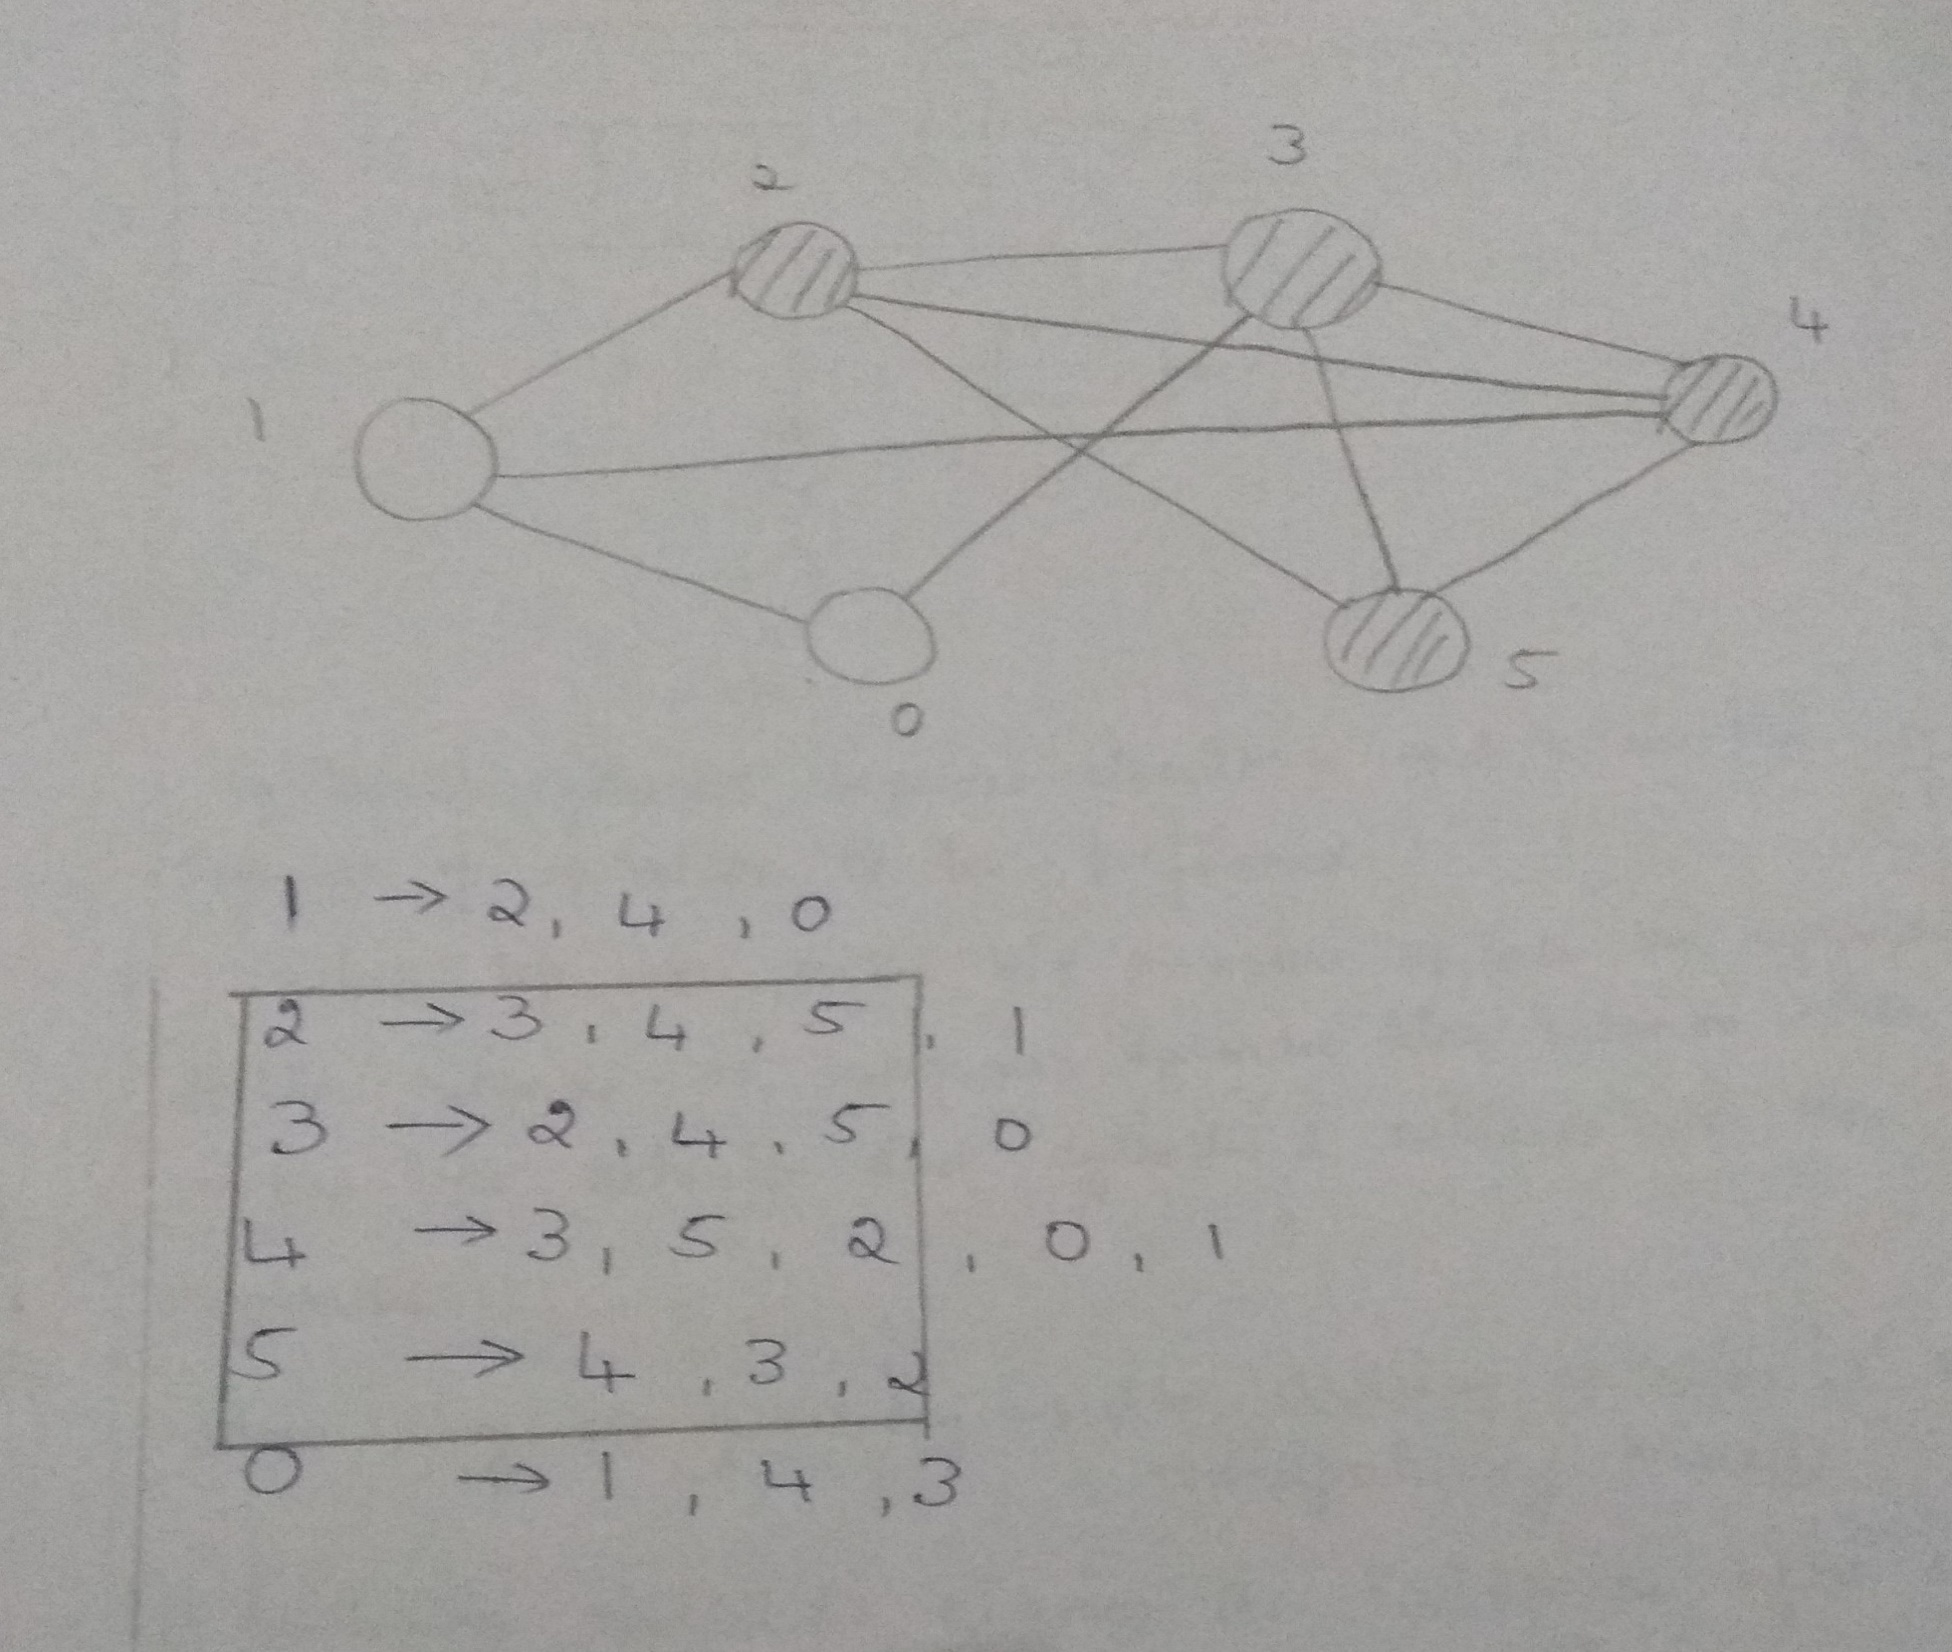 3
2
4
1
5
0
1 → 2, 4, 0
2 → 3, 4, 5, 1
3 → 2, 4, 5, 0
4 → 3, 5, 2, 0, 1
5 → 4, 3, 2
0 → 1, 4, 3